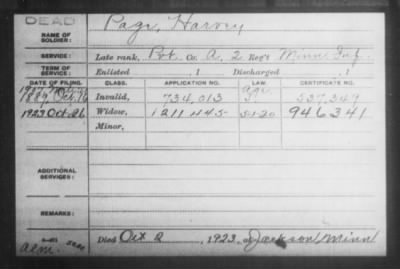 DEAD
NAME OF SOLDIER: Page, Harvey
SERVICE: Late rank, Pvt. Co. A, 2 Reg't Minn Inf.
TERM OF SERVICE: Enlisted , 1 Discharged , 1
DATE OF FILING. CLASS. APPLICATION NO. LAW. CERTIFICATE NO.
1889 Oct. 16 Invalid, 734,013 537,349
1923 Oct 26 Widow, 1211445 5-1-20 946341
Minor,
ADDITIONAL SERVICES:
REMARKS:
Died Oct 2, 1923, at Jackson Minn